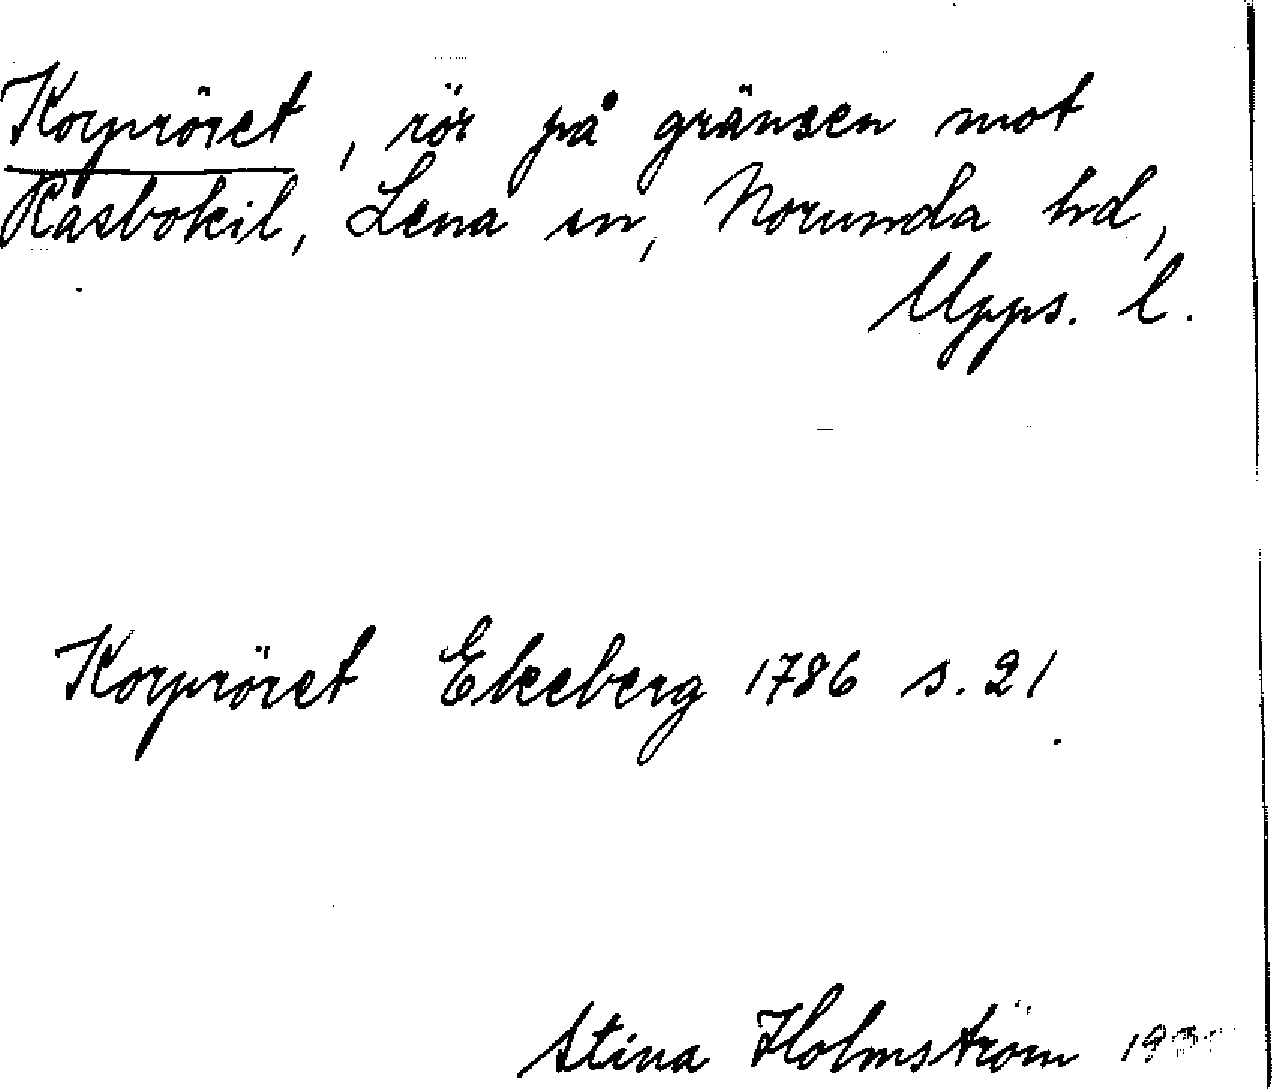 Korpröret, rör på gränsen mot
Rasbokil, Lena sn, Norunda hd,
Upps. l.
Korpröret Ekeberg 1786 s. 21
Stina Holmström